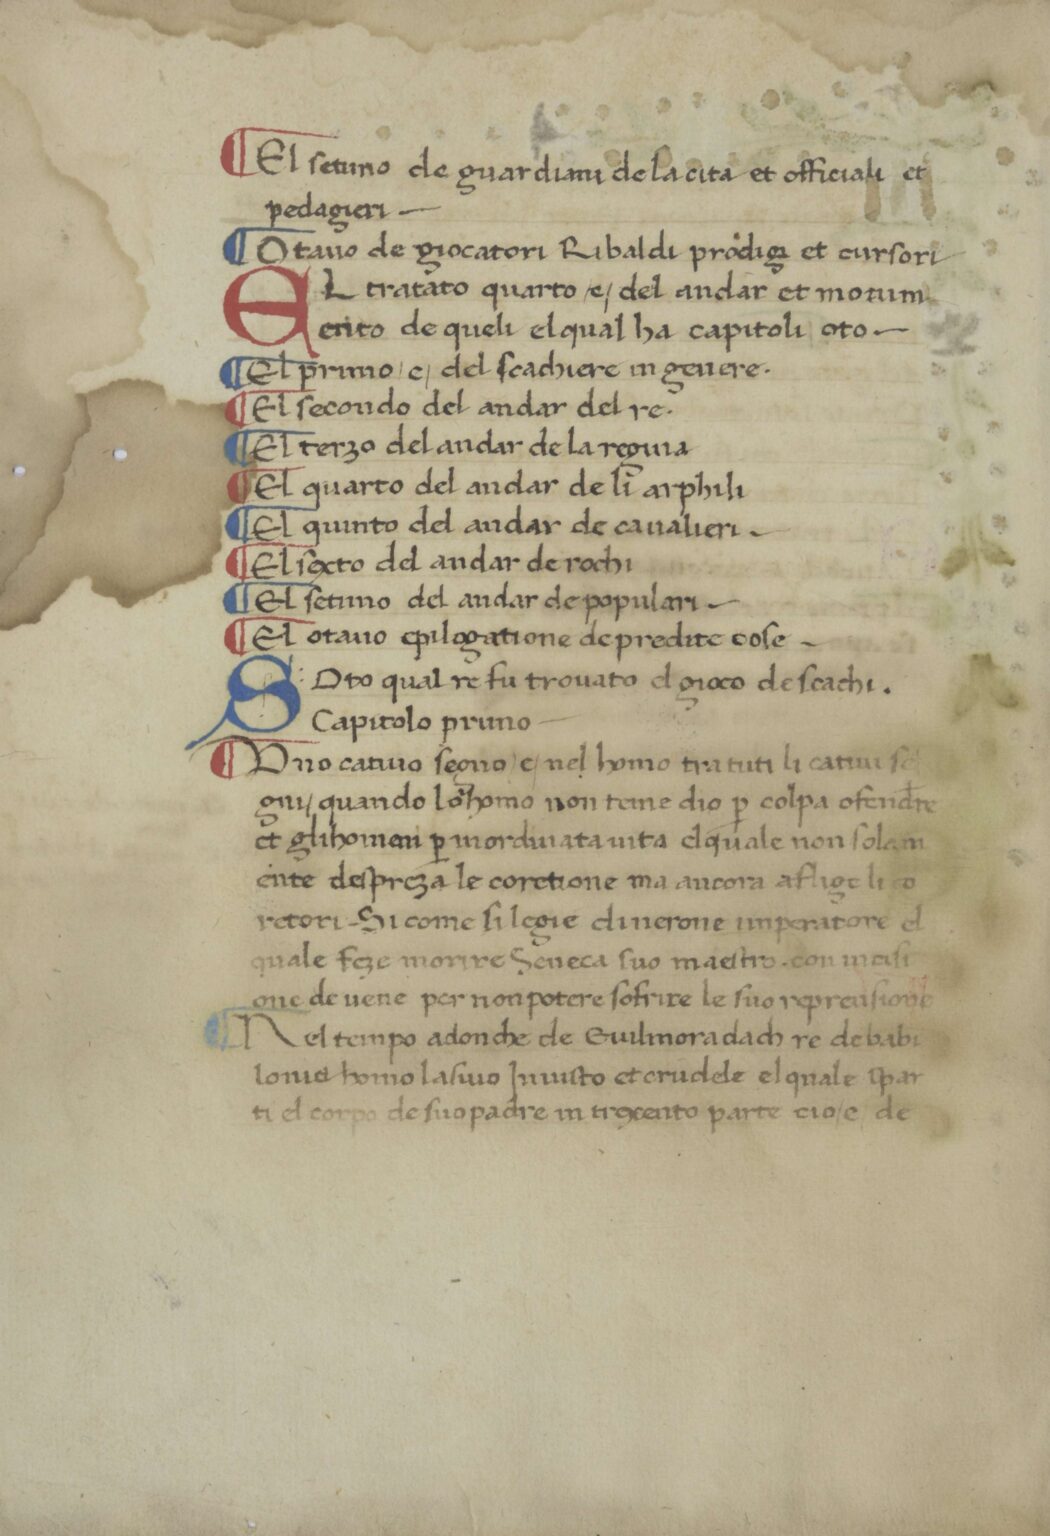 ¶ El setimo de guardiani de la cita et officiali et
pedagieri —
¶ Otavo de giocatori Ribaldi prodigi et cursori
EL tratato quarto /e/ del andar et movim
ento de queli el qual ha capitoli oto —
¶ El primo /e/ del scachiere in genere.
¶ El secondo del andar del re.
¶ El terzo del andar de la regina
¶ El quarto del andar de li arphili
¶ El quinto del andar de cavalieri —
¶ El sexto del andar de rochi
¶ El setimo del andar de populari —
¶ El otavo epilogatione de predite cose —
SOto qual re fu trovato el gioco de scachi.
Capitolo primo —
¶ Uno cativo segno /e/ nel homo tra tuti li cativi se
gni/ quando lo homo non teme dio ꝑ colpa ofendre
et gli homeni ꝑ inordinata vita el quale non solam
ente despreza le coretione ma ancora aflige li co
retori - Si come si legie di nerone imperatore el
quale feze morire Seneca suo maestro. con incisi
one de vene per non potere sofrire le suo reprensione
¶ Nel tempo adonche de Evilmoradach re de babi
lonia homo lasivo Iniusto et crudele el quale spar
ti el corpo de suo padre in trecento parte cio /e/ de